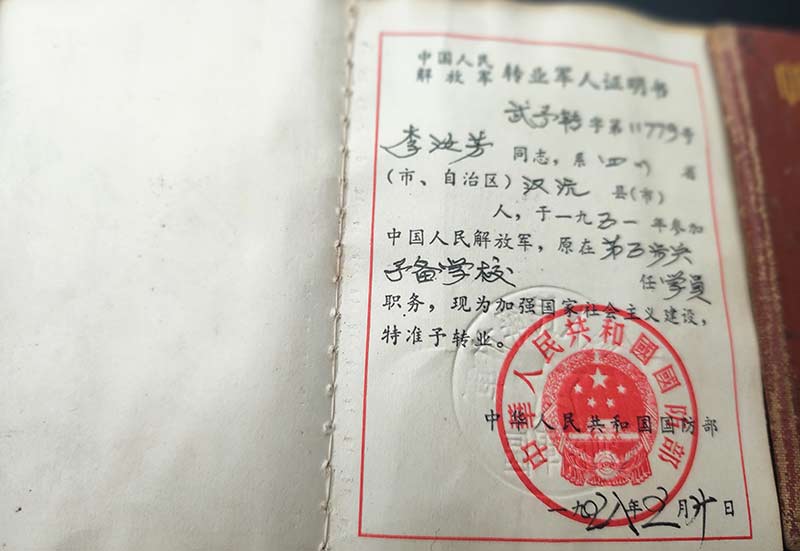 中国人民
解放军 转业军人证明书
武予转字第11775号
李汝芳 同志，系四川省
（市、自治区）汉沅县（市）
人，于一九五一年参加
中国人民解放军，原在第五步
予备学校 任学员
职务，现为加强国家社会主义建设，
特准予转业。
中华人民共和國國防部
中华人民共和国国防部
一九 年 月 日